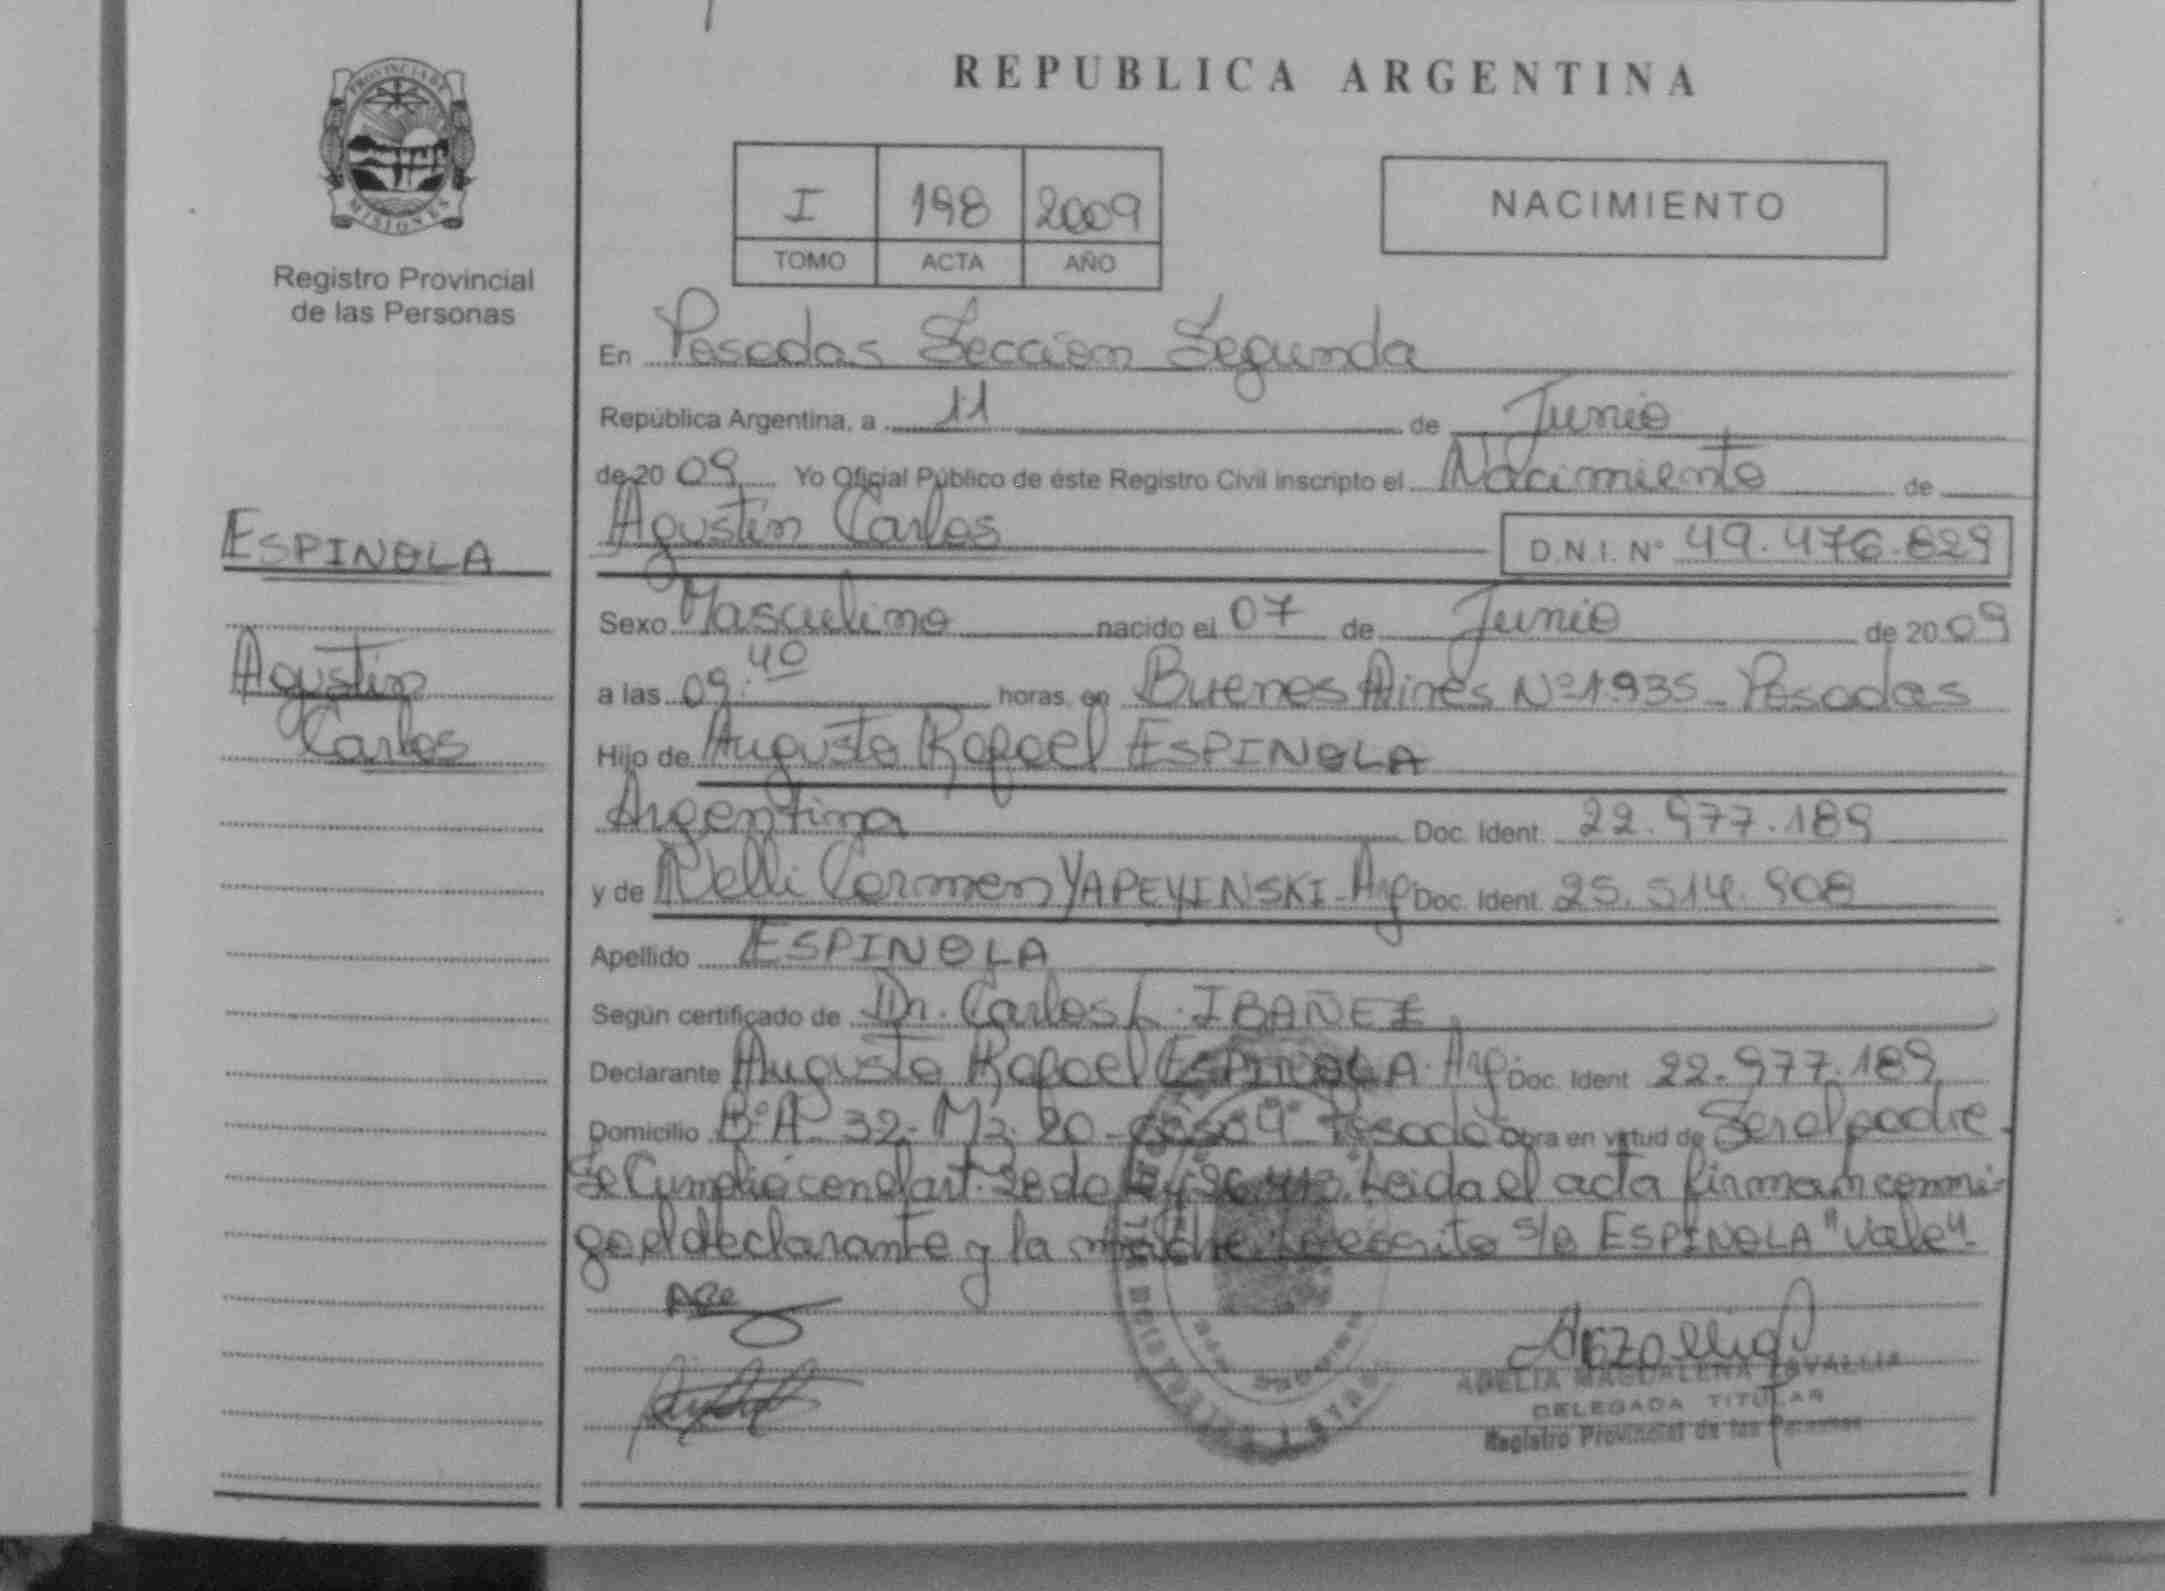 PROVINCIA DE
MISIONES
Registro Provincial
de las Personas
REPUBLICA ARGENTINA
I 198 2009
TOMO ACTA AÑO
NACIMIENTO
En Posadas Seccion Segunda
República Argentina, a 11 de Junio
de 20 09 Yo Oficial Público de éste Registro Civil inscripto el Nacimiento de
Agustin Carlos D.N.I. Nº 49.476.829
ESPINOLA
Agustin
Carlos
Sexo Masculino nacido el 07 de Junio de 20 09
a las 09:40 horas, en Buenos Aires Nº 1.935 - Posadas
Hijo de Augusto Rafael ESPINOLA
Argentina Doc. Ident. 22.977.189
y de Nelli Carmen YAPEYINSKI - Arg. Doc. Ident. 25.514.908
Apellido ESPINOLA
Según certificado de Dr. Carlos L. IBAÑEZ
Declarante Augusto Rafael ESPINOLA. Arg. Doc. Ident 22.977.189
Domicilio BºA- 32- Mz. 20- Posadas obra en virtud de Ser el padre.
Se Cumplió con el art. Leida el acta firman conmi-
go el declarante y la madre. s/e ESPINOLA "Vale".
ADELIA MAGDALENA ZAVALLIA
DELEGADA TITULAR
Registro Provincial de las Personas